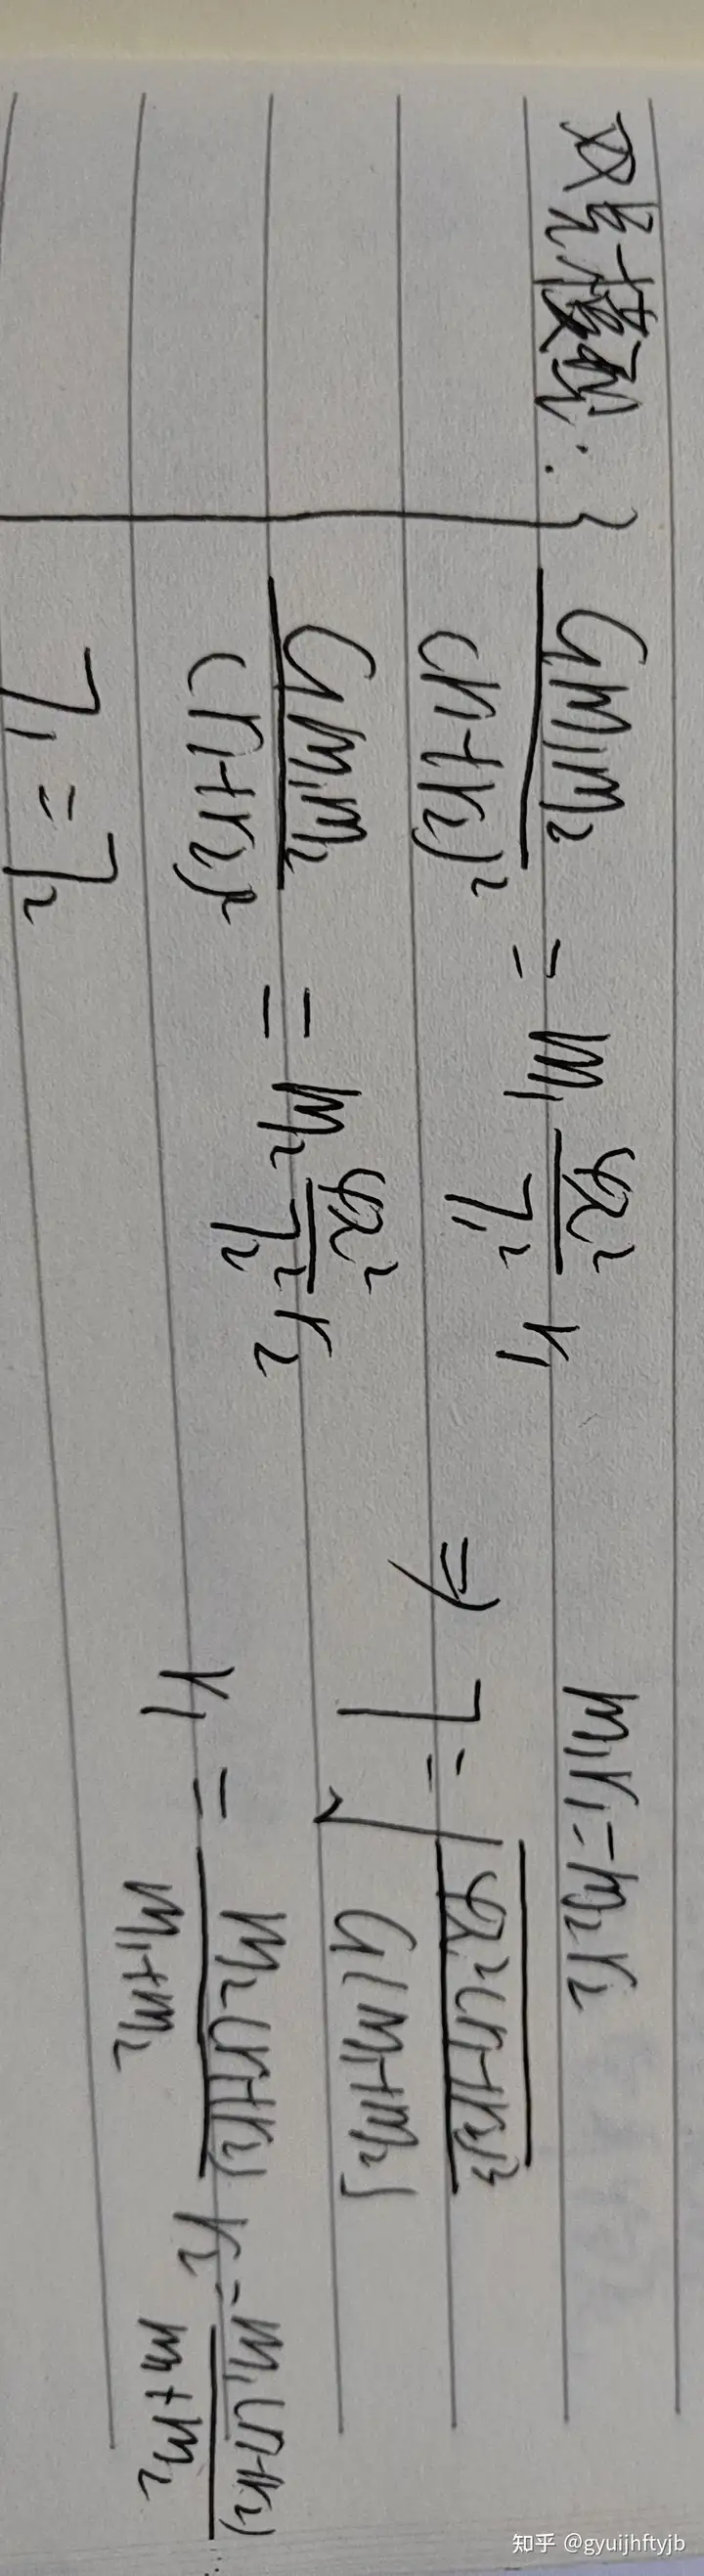 双星模型:{ Gm₁m₂/(r₁+r₂)² = m₁ 4π²/T₁² r₁
Gm₁m₂/(r₁+r₂)² = m₂ 4π²/T₂² r₂
T₁=T₂
⇒
m₁r₁=m₂r₂
T=√(4π²(r₁+r₂)³/G(m₁+m₂))
r₁ = m₂(r₁+r₂)/m₁+m₂ r₂=m₁(r₁+r₂)/m₁+m₂
知乎 @gyuijhftyjb